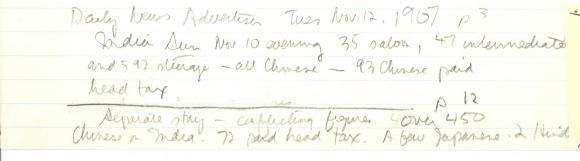 Daily News Advertiser Tues Nov 12, 1907 p 3
India Sun Nov 10 evening 35 saloon, 47 intermediate
and 592 steerage - all Chinese - 93 Chinese paid
head tax.
p 12
Separate story - conflicting figures over 450
Chinese on India. 72 paid head tax. A few Japanese. 2 Hind